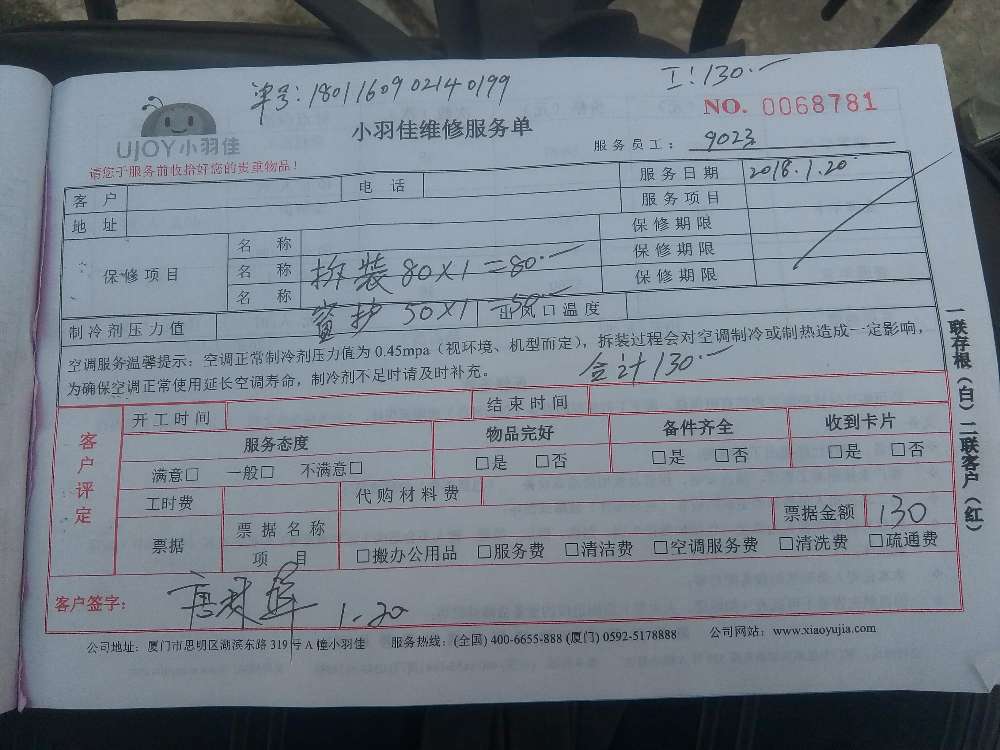 单号:1801160902140199
工:130.—
NO. 0068781
UJOY小羽佳
小羽佳维修服务单
服务员工: 9023
请您于服务前收拾好您的贵重物品!
客户 电话 服务日期 2018.1.20
地址 服务项目
保修项目 名称 保修期限
名称 拆装 80X1=80.— 保修期限
名称 保修期限
制冷剂压力值 50X1=50.— 出风口温度
空调服务温馨提示:空调正常制冷剂压力值为0.45mpa(视环境、机型而定),拆装过程会对空调制冷或制热造成一定影响,
为确保空调正常使用延长空调寿命,制冷剂不足时请及时补充。
合计130.—
客户评定
开工时间 结束时间
服务态度 物品完好 备件齐全 收到卡片
满意□ 一般□ 不满意□ □是 □否 □是 □否 □是 □否
工时费 代购材料费
票据 票据名称 票据金额 130
项目 □搬办公用品 □服务费 □清洁费 □空调服务费 □清洗费 □疏通费
客户签字: 1.20
公司地址:厦门市思明区湖滨东路319号A幢小羽佳 服务热线:(全国)400-6655-888(厦门)0592-5178888 公司网站:www.xiaoyujia.com
一联存根(白)二联客户(红)